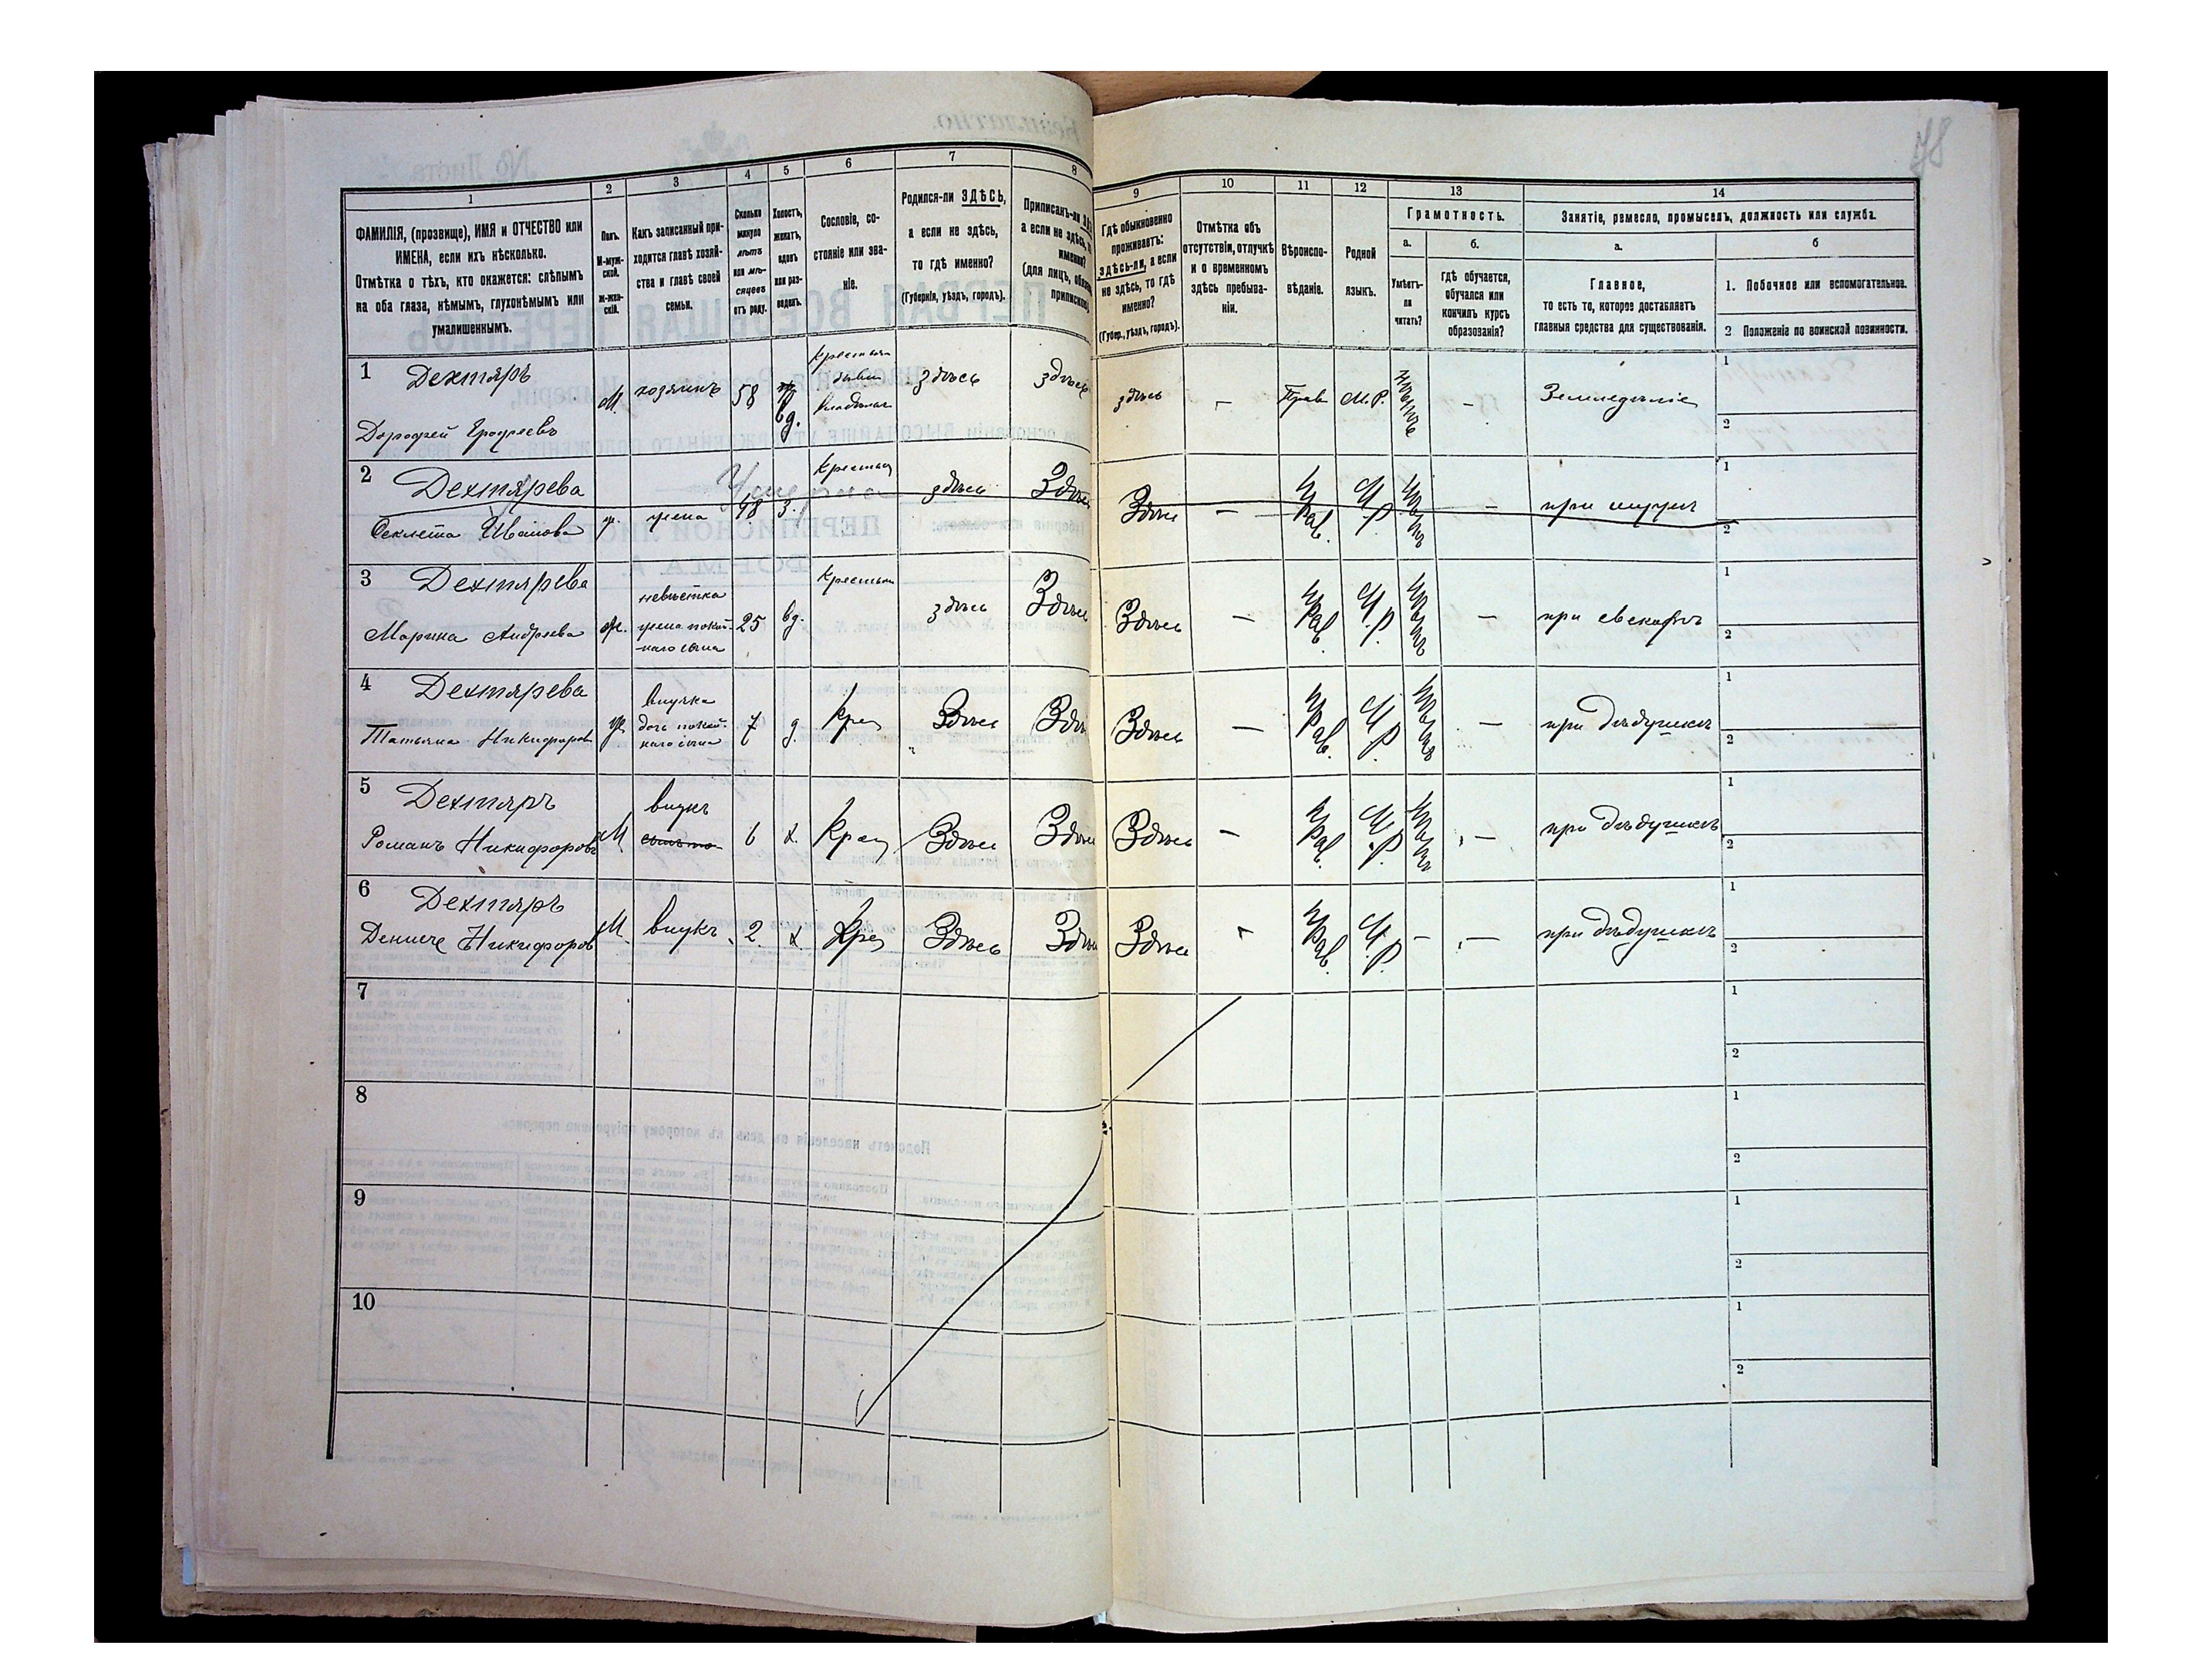 78
1
2
3
4
5
6
7
8
9
10
11
12
13
14
ФАМИЛІЯ, (прозвище), ИМЯ и ОТЧЕСТВО или
ИМЕНА, если ихъ нѣсколько.
Отмѣтка о тѣхъ, кто окажется: слѣпымъ
на оба глаза, нѣмымъ, глухонѣмымъ или
умалишеннымъ.
Полъ.
М-муж-
ской.
ж-жен-
скій.
Какъ записанный при-
ходится главѣ хозяй-
ства и главѣ своей
семьи.
Сколько
минуло
лѣтъ
или мѣ-
сяцевъ
отъ роду.
Холостъ,
женатъ,
вдовъ
или раз-
веденъ.
Сословіе, со-
стояніе или зва-
ніе.
Родился-ли ЗДѢСЬ,
а если не здѣсь,
то гдѣ именно?
(Губернія, уѣздъ, городъ).
Приписанъ-ли
а если не здѣсь,
именно?
(для лицъ,
Гдѣ обыкновенно
проживаетъ:
здѣсь-ли, а если
не здѣсь, то гдѣ
именно?
(Губер., уѣздъ, городъ).
Отмѣтка объ
отсутствіи, отлучкѣ
и о временномъ
здѣсь пребыва-
ніи.
Вѣроиспо-
вѣданіе.
Родной
языкъ.
Грамотность.
а.
Умѣетъ-
ли
читать?
б.
гдѣ обучается,
обучался или
кончилъ курсъ
образованія?
Занятіе, ремесло, промыселъ, должность или служба.
а.
Главное,
то есть то, которое доставляетъ
главныя средства для существованія.
б
1. Побочное или вспомогательное.
2 Положеніе по воинской повинности.
1 Дехтяръ
Дорофей Ерофеевъ
М. хозяинъ 58 вд. здѣсь здѣсь здѣсь – Прав М.Р. – Земледѣліе 1
2
2 Дехтярева
Феклета Иванова
ж. жена 48 з. здѣсь Здѣсь Здѣсь – Прав. М.Р. – 1
2
3 Дехтярева
Марина Андреева
ж. невѣстка
жена покой-
наго сына
25 вд. здѣсь Здѣсь Здѣсь – Прав. М.Р. – при свекорѣ 1
2
4 Дехтярева
Татьяна Никифоров
ж внучка
дочь покой-
наго сына
7 д. Крес Здѣсь Здѣсь Здѣсь – Прав. М.Р. – при дѣдушкѣ 1
2
5 Дехтяръ
Романъ Никифоровъ
М. внукъ
6 х. Крес Здѣсь Здѣсь Здѣсь – Прав. М.Р. – при дѣдушкѣ 1
2
6 Дехтяръ
Никифоров
М. внукъ 2. х Крес Здѣсь Здѣсь Здѣсь – Прав. М.Р. – – при дѣдушкѣ 1
2
7 1
2
8 1
2
9 1
2
10 1
2